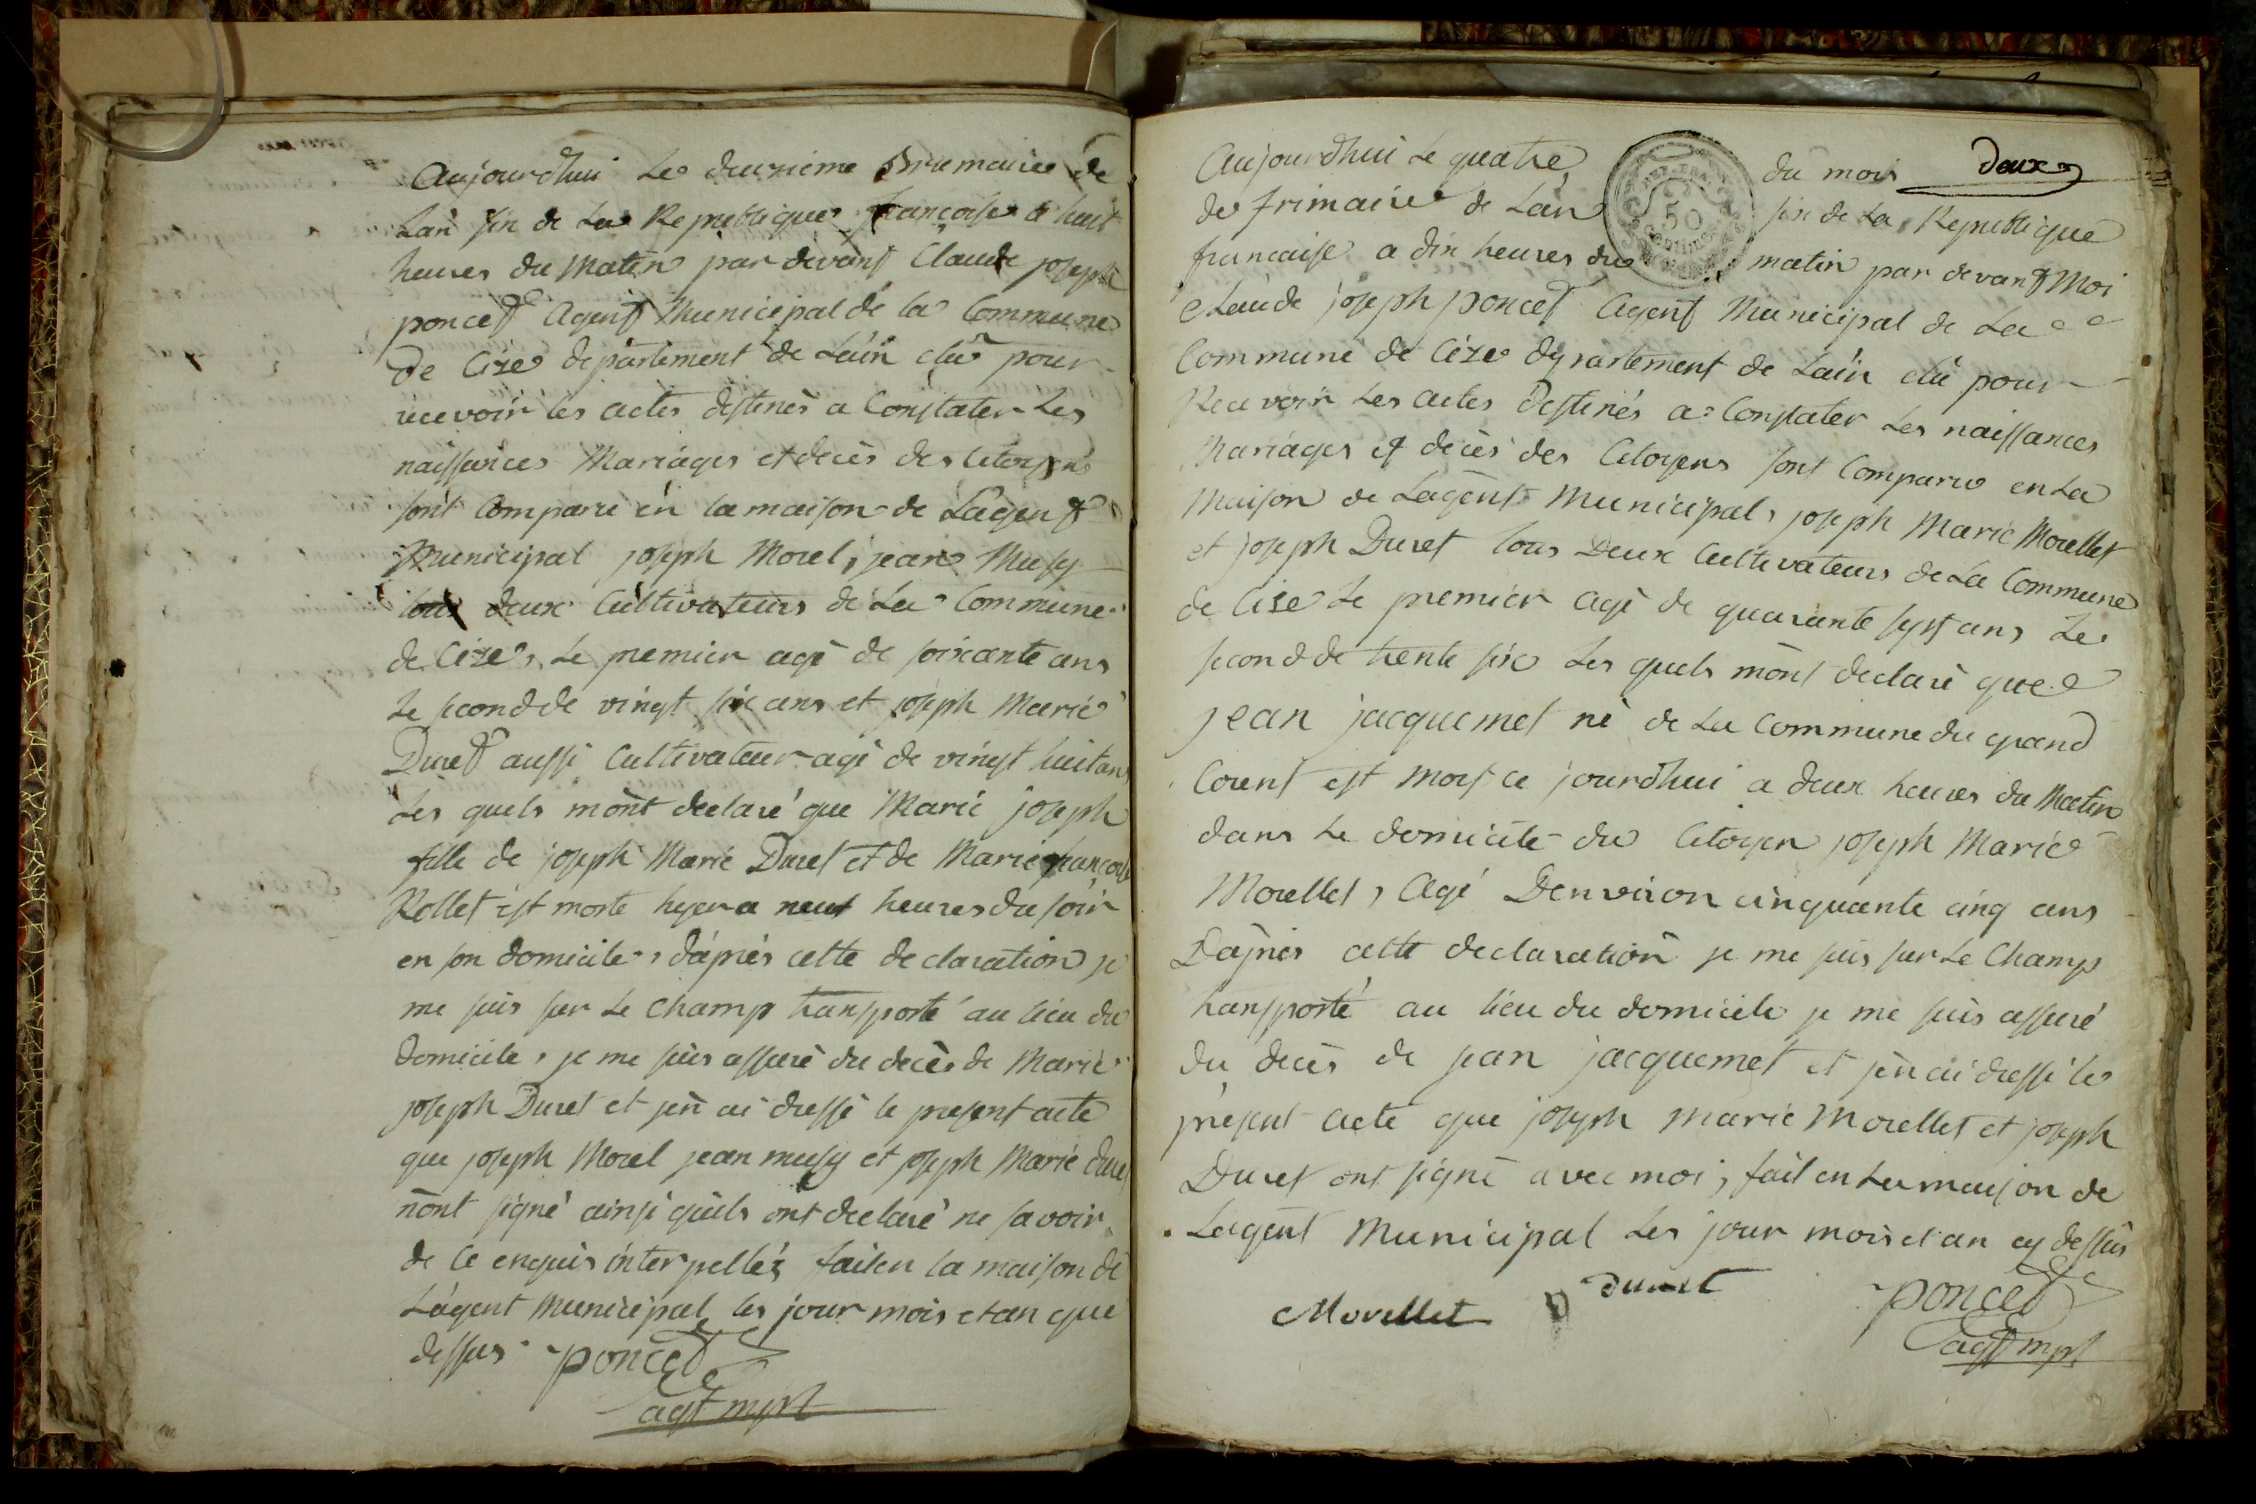 Aujourdhui Le deuxieme Brumaire de
Lan six de La Republique francaise a huit
heures du Matin par devant Claude joseph
poncet Agent Municipal de la Commune
de Cize departement de Lain elû pour
recevoir les actes destinés a Constater Les
naissances Mariages et decès des Citoyens
sont Comparu en la maison de Lagent
Municipal joseph Morel, jean Musy
tous deux Cultivateurs de La Commune
de Cize, Le premier agé de soixante ans
Le second de vingt six ans et joseph Marie
Duret aussi Cultivateur agé de vingt huit ans
Les quels mont declaré que Marie joseph
fille de joseph Marie Duret et de Marie francoise
Rollet est morte hyer a neuf heures du soir
en son domicile, dáprés cette declaration je
me suis sur Le Champ transporté au lieu du
domicile, je me suis assuré du decès de Marie
joseph Duret et jen ai dressé le present acte
que joseph Morel jean musy et joseph Marie duret
nont signé ainsi quils ont declaré ne savoir
de Ce enquis interpellés fait en la maison de
Lagent Municipal les jour mois et an que
dessus poncet
agt mpl
deux
Aujourdhui Le quatre du mois
de frimaire de Lan six de La Republique
50
Centimes
francaise a dix heures du matin par devant Moi
Claude joseph poncet Agent Municipal de La
Commune de Cize departement de Lain elû pour
Recevoir Les actes destinés a Constater Les naissances
Mariages et decès des Citoyens sont Comparu en La
Maison de Lagent Municipal, joseph Marie Morellet
et joseph Duret tous Deux Cultivateurs de La Commune
de Cise Le premier agé de quarante sept ans Le
second de trente six Les quels mont declaré que
jean jacquemet né de La Commune du grand
Corent est mort ce jourdhui a deux heures du Matin
dans Le domicile du Citoyen joseph Marie
Morellet, Agé Denviron cinquante cinq ans
Dáprés cette declaration je me suis sur Le Champ
transporté au lieu du domicile je me suis assuré
du decès de jean jacquemet et jen ai dressé le
présent acte que joseph Marie Morellet et joseph
Duret ont signé avec moi, fait en La maison de
Lagent Municipal Les jour mois et an cy dessus
Morellet duret poncet
agt mpl